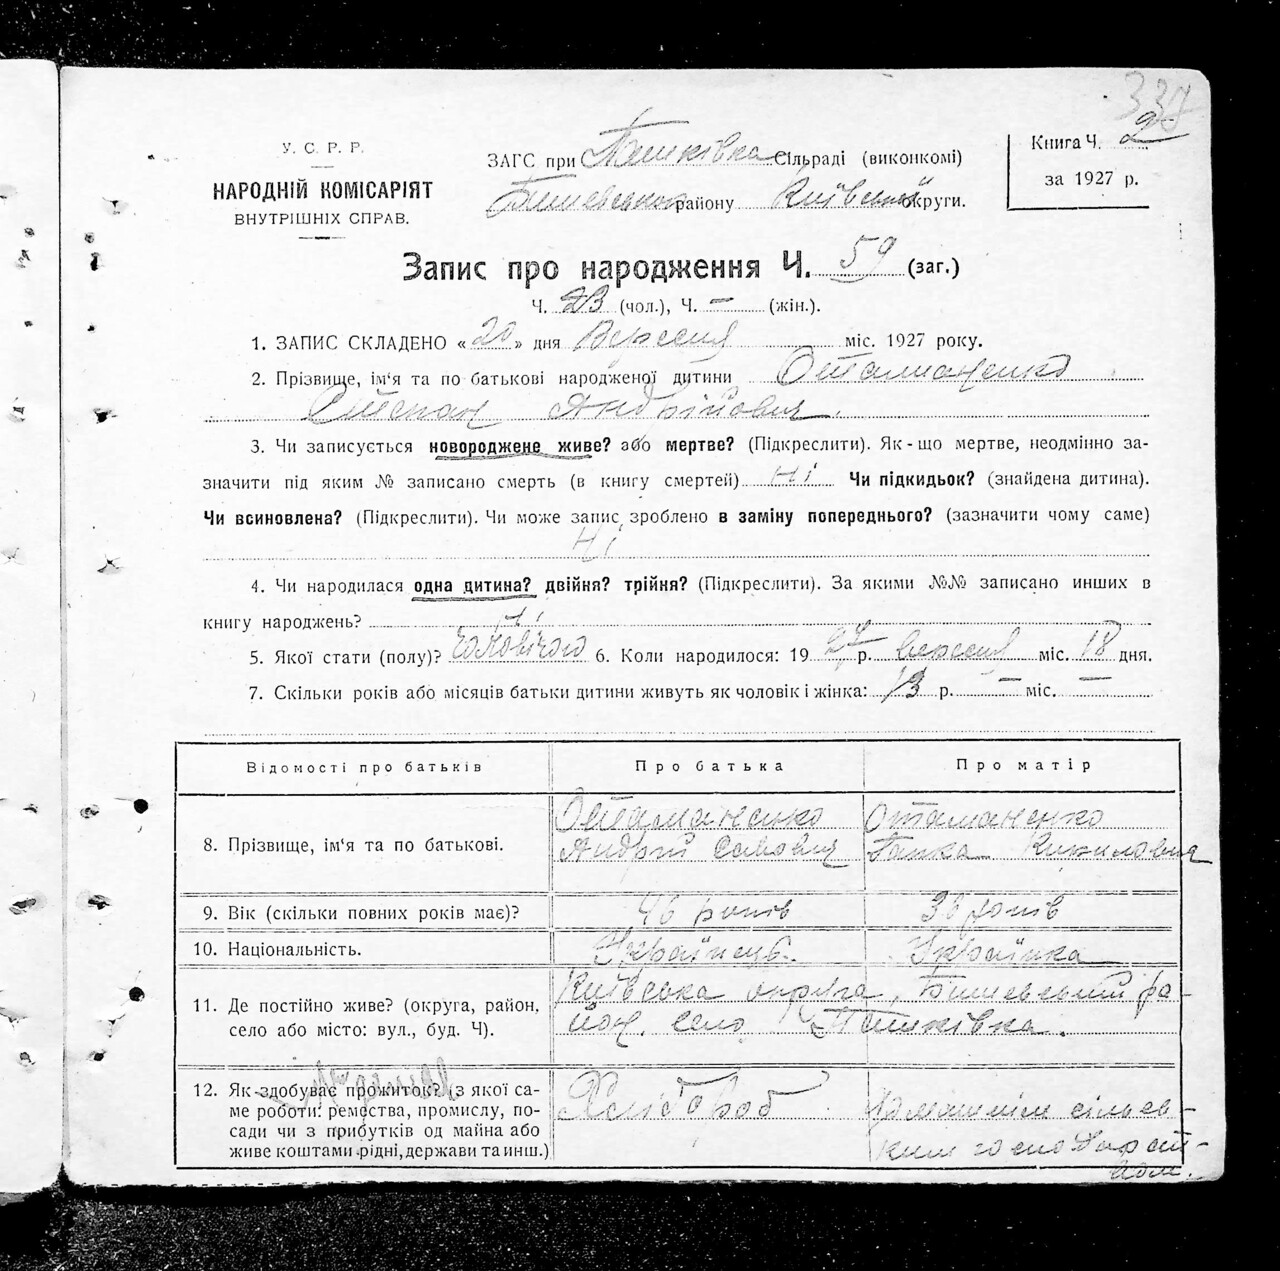 337
У. С. Р. Р.
НАРОДНІЙ КОМІСАРІЯТ
ВНУТРІШНІХ СПРАВ.
ЗАГС при Пашківка Сільраді (виконкомі)
Бишевського району Київської округи.
Книга Ч. 2
за 1927 р.
Запис про народження Ч. 59 (заг.)
Ч. 23 (чол.), Ч. — (жін.).
1. ЗАПИС СКЛАДЕНО « 20 » дня Вересня міс. 1927 року.
2. Прізвище, ім‘я та по батькові народженої дитини Отаманенко
Степан Андрійович.
3. Чи записується новороджене живе? або мертве? (Підкреслити). Як-що мертве, неодмінно за-
значити під яким № записано смерть (в книгу смертей) Ні Чи підкидьок? (знайдена дитина).
Чи всиновлена? (Підкреслити). Чи може запис зроблено в заміну попереднього? (зазначити чому саме)
Ні
4. Чи народилася одна дитина? двійня? трійня? (Підкреслити). За якими №№ записано инших в
книгу народжень? Ні
5. Якої стати (полу)? Чоловічого 6. Коли народилося: 19 27 р. вересня міс. 18 дня.
7. Скільки років або місяців батьки дитини живуть як чоловік і жінка: 13 р. — міс. —
Відомості про батьків Про батька Про матір
8. Прізвище, ім‘я та по батькові. Отаманенко Андрій Савович Отаманенко Ганка Кириловна
9. Вік (скільки повних років має)? 46 років 38 років
10. Національність. Українець. Українка
11. Де постійно живе? (округа, район, Київська округа, Бишевський ра-
село або місто: вул., буд. Ч). йон, село Пашківка.
12. Як здобуває прожиток? (з якої са- Хлібороб Домашнім сільсь-
ме роботи: ремества, промислу, по- ким господарст-
сади чи з прибутків од майна або вом.
живе коштами рідні, держави та инш.)